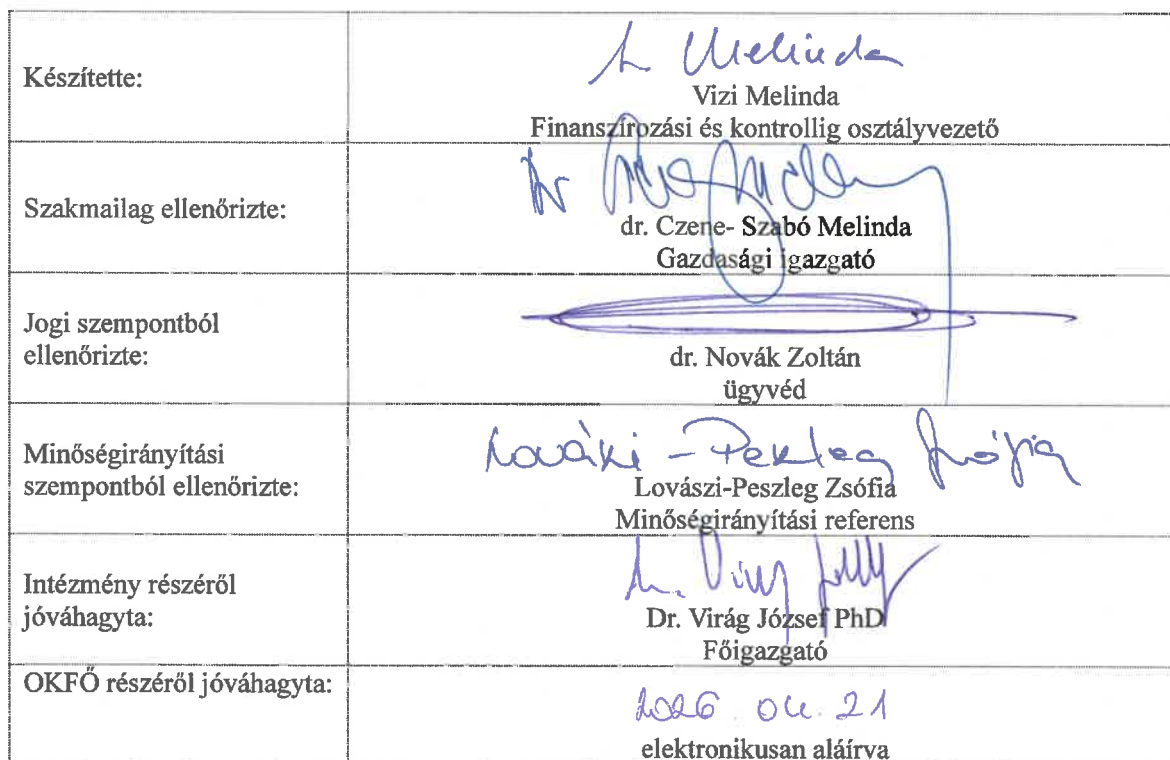 Készítette:
Melinda
Vizi Melinda
Finanszírozási és kontrollig osztályvezető
Szakmailag ellenőrizte:
dr. Czene- Szabó Melinda
Gazdasági igazgató
Jogi szempontból
ellenőrizte:
dr. Novák Zoltán
ügyvéd
Minőségirányítási
szempontból ellenőrizte:
Lovászi-Peszleg Zsófia
Minőségirányítási referens
Intézmény részéről
jóváhagyta:
Dr. Virág József PhD
Főigazgató
OKFŐ részéről jóváhagyta:
2026. 04. 21
elektronikusan aláírva